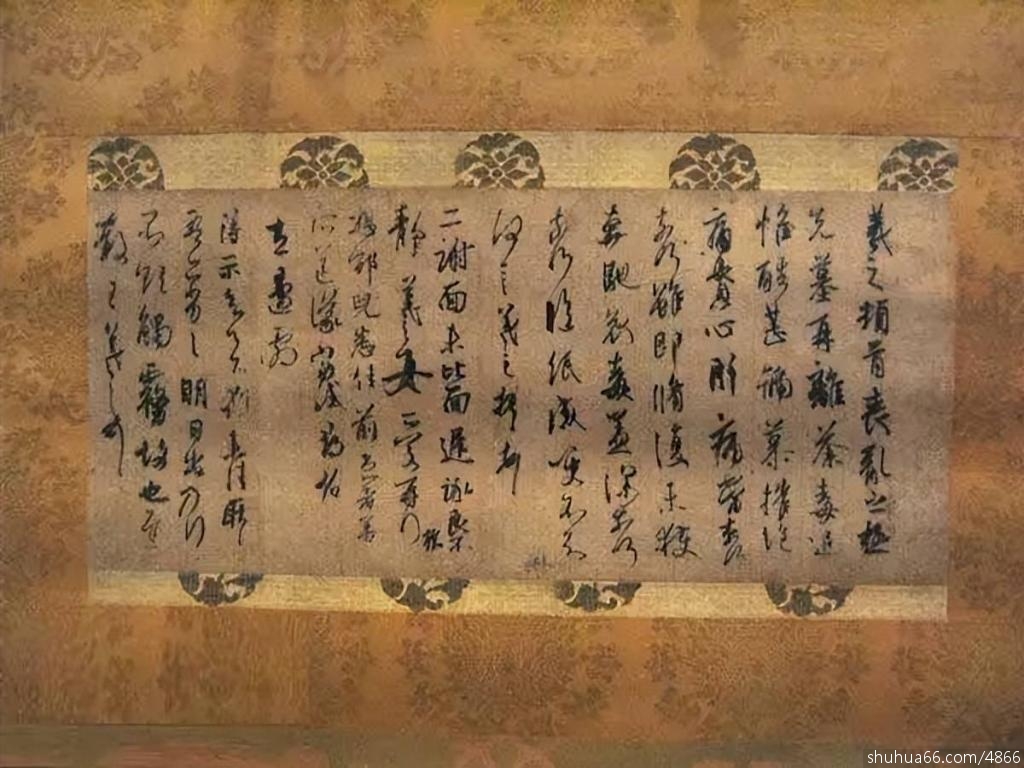 羲之頓首喪亂之極
先墓再離荼毒追
惟酷甚號慕摧絕
痛貫心肝痛當奈何
奈何雖即脩復未獲
奔馳哀毒益深奈何
奈何臨紙感哽不知
何言羲之頓首頓首
二謝面未比面遲詠良不
靜羲之女愛再拜
想邵兒悉佳前患者善
所送議當試尋省
左邊劇
得示知足下猶未佳耿耿
吾亦劣劣明日出乃行
不欲觸霧故也遲
散王羲之頓首
shuhua66.com/4866